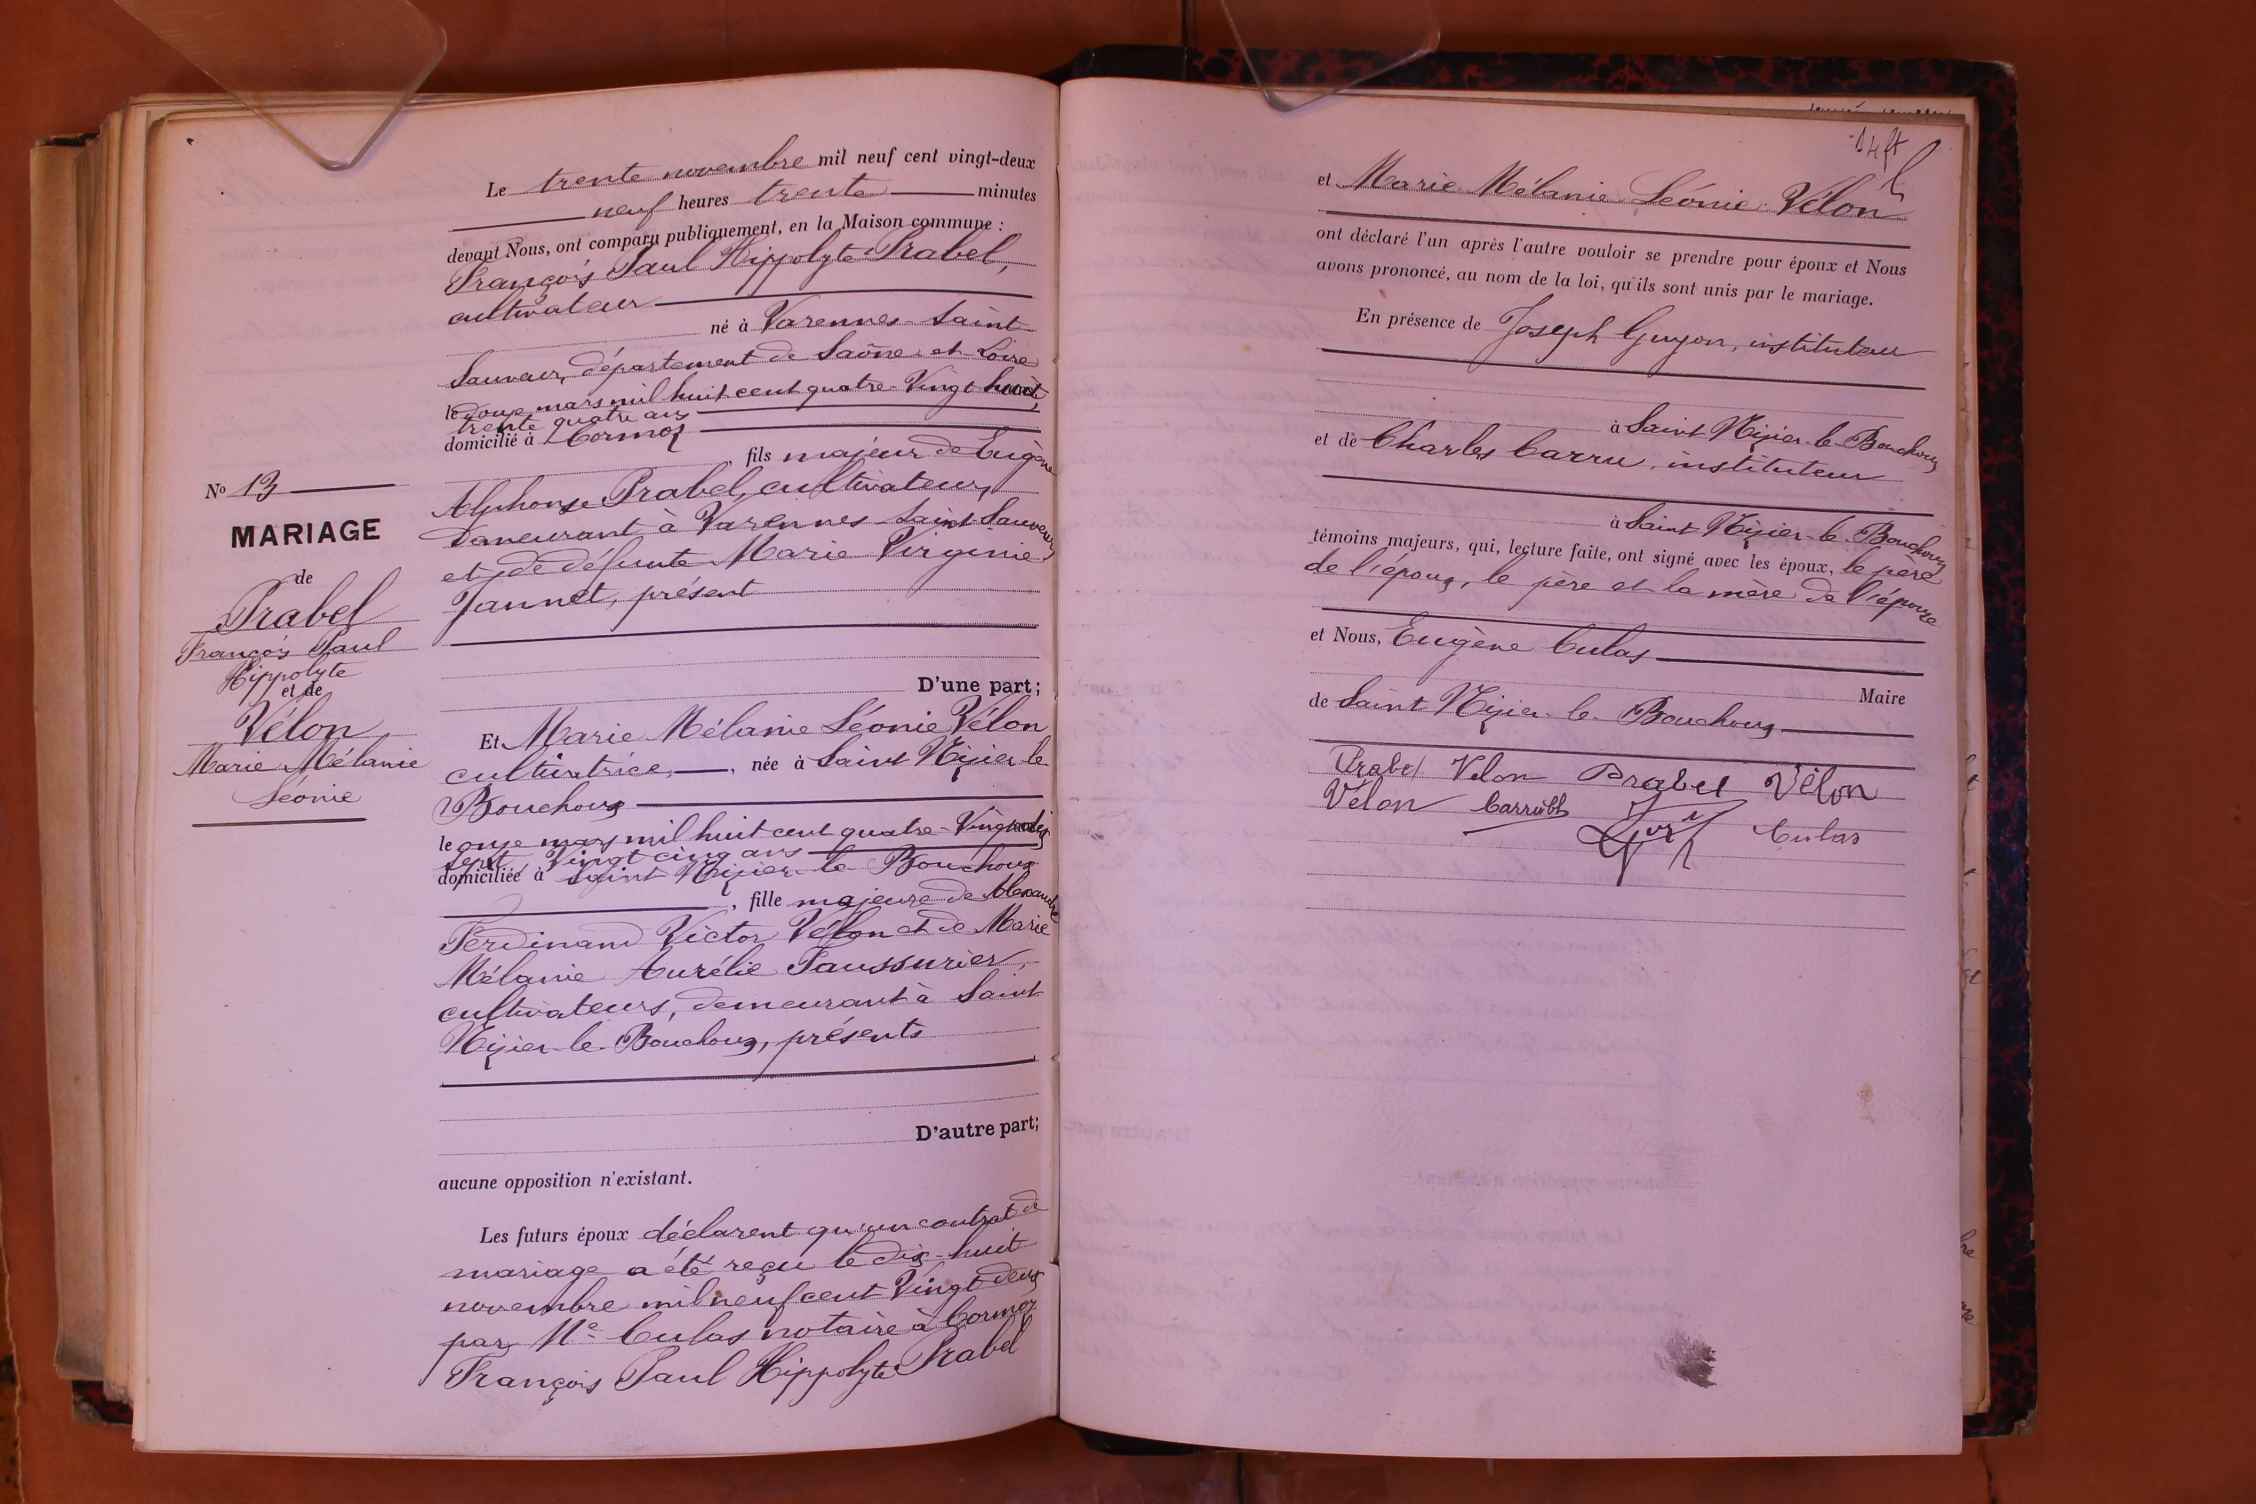 N° 13
MARIAGE
de
Prabel
François Paul
Hippolyte
et de
Vélon
Marie Mélanie
Léonie
Le trente novembre mil neuf cent vingt-deux
neuf heures trente minutes
devant Nous, ont comparu publiquement, en la Maison commune :
François Paul Hippolyte Prabel,
cultivateur
né à Varennes-Saint-
Sauveur, département de Saône-et-Loire
le douze mars mil huit cent quatre-Vingt huit,
trente quatre ans
domicilié à Cormoz
, fils majeur de Eugène
Alphonse Prabel, cultivateur,
demeurant à Varennes-Saint-Sauveur
et de défunte Marie Virginie
Jaunet, présent
D'une part;
Et Marie Mélanie Léonie Vélon
cultivatrice, née à Saint Nizier-le-
Bouchoux
le onze mars mil huit cent quatre-Vingt-dix
sept, Vingt cinq ans
domiciliée à Saint Nizier-le-Bouchoux
, fille majeure de Alexandre
Ferdinand Victor Vélon et de Marie
Mélanie Aurélie Faussurier,
cultivateurs, demeurant à Saint
Nizier-le-Bouchoux, présents
D'autre part;
aucune opposition n'existant.
Les futurs époux déclarent qu'un contrat de
mariage a été reçu le dix-huit
novembre mil neuf cent Vingt deux
par Me Culas notaire à Cormoz
François Paul Hippolyte Prabel
et Marie Mélanie Léonie Vélon
ont déclaré l'un après l'autre vouloir se prendre pour époux et Nous
avons prononcé, au nom de la loi, qu'ils sont unis par le mariage.
En présence de Joseph Guyon, instituteur
à Saint Nizier-le-Bouchoux
et de Charles Carru, instituteur
à Saint Nizier-le-Bouchoux
témoins majeurs, qui, lecture faite, ont signé avec les époux, le père
de l'époux, le père et la mère de l'épouse
et Nous, Eugène Culas
Maire
de Saint Nizier-le-Bouchoux
Prabel Velon Prabel Vélon
Vélon Carru
Culas